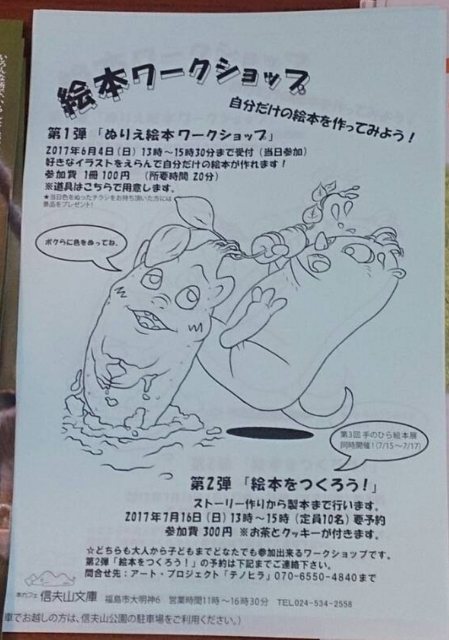 絵本ワークショップ
自分だけの絵本を作ってみよう！
第1弾「ぬりえ絵本ワークショップ」
2017年6月4日（日）13時～15時30分まで受付（当日参加）
好きなイラストをえらんで自分だけの絵本が作れます！
参加費 1冊100円　（所要時間 20分）
※道具はこちらで用意します。
★当日色をぬったチラシをお持ち頂いた方には
景品をプレゼント！
ボクらに色をぬってね。
第3回 手のひら絵本展
同時開催！（7/15～7/17）
第2弾「絵本をつくろう！」
ストーリー作りから製本まで行います。
2017年7月16日（日）13時～15時（定員10名）要予約
参加費 300円　※お茶とクッキーが付きます。
☆どちらも大人から子どもまでどなたでも参加出来るワークショップです。
第2弾「絵本をつくろう！」の予約は下記までご連絡下さい。
問合せ先：アート・プロジェクト「テノヒラ」070-6550-4840まで
本カフェ 信夫山文庫　福島市大明神6　営業時間11時～16時30分　TEL024-534-2558
車でお越しの方は、信夫山公園の駐車場をご利用ください。）